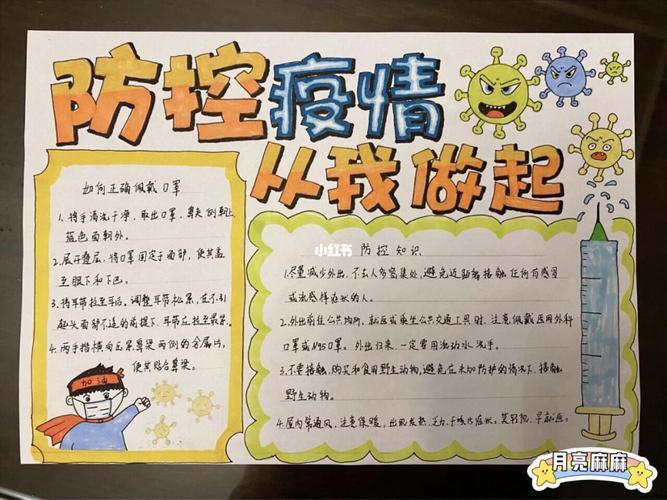 防控疫情
从我做起
如何正确佩戴口罩
1、将手清洗干净，取出口罩，鼻夹侧朝上
蓝色面朝外。
2、展开叠层，将口罩固定于面部，使其盖
至眼下和下巴。
3、将耳带拉至耳后，调整耳带松紧，在不引
起头面部不适的前提下，耳带应拉至最紧。
4、两手指横向压紧鼻梁两侧的金属片，
使其贴合鼻梁。
加油
小红书
防控知识
1.尽量减少外出，不去人多密集处，避免近距离接触任何有感冒
或流感样症状的人。
2.外出前往公共场所，就医或乘坐公共交通工具时，注意佩戴医用外科
口罩或N95口罩。外出归来，一定要用流动水洗手。
3.不要接触，购买和食用野生动物，避免在未加防护的情况下，接触
野生动物。
4.屋内常通风，注意保暖，出现发热、乏力、干咳等症状，莫轻视，早就医。
月亮麻麻